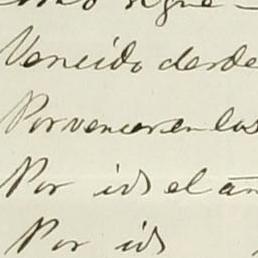 como sigue
Vencido desde
Por vencer en los
Por id el añ
Por id